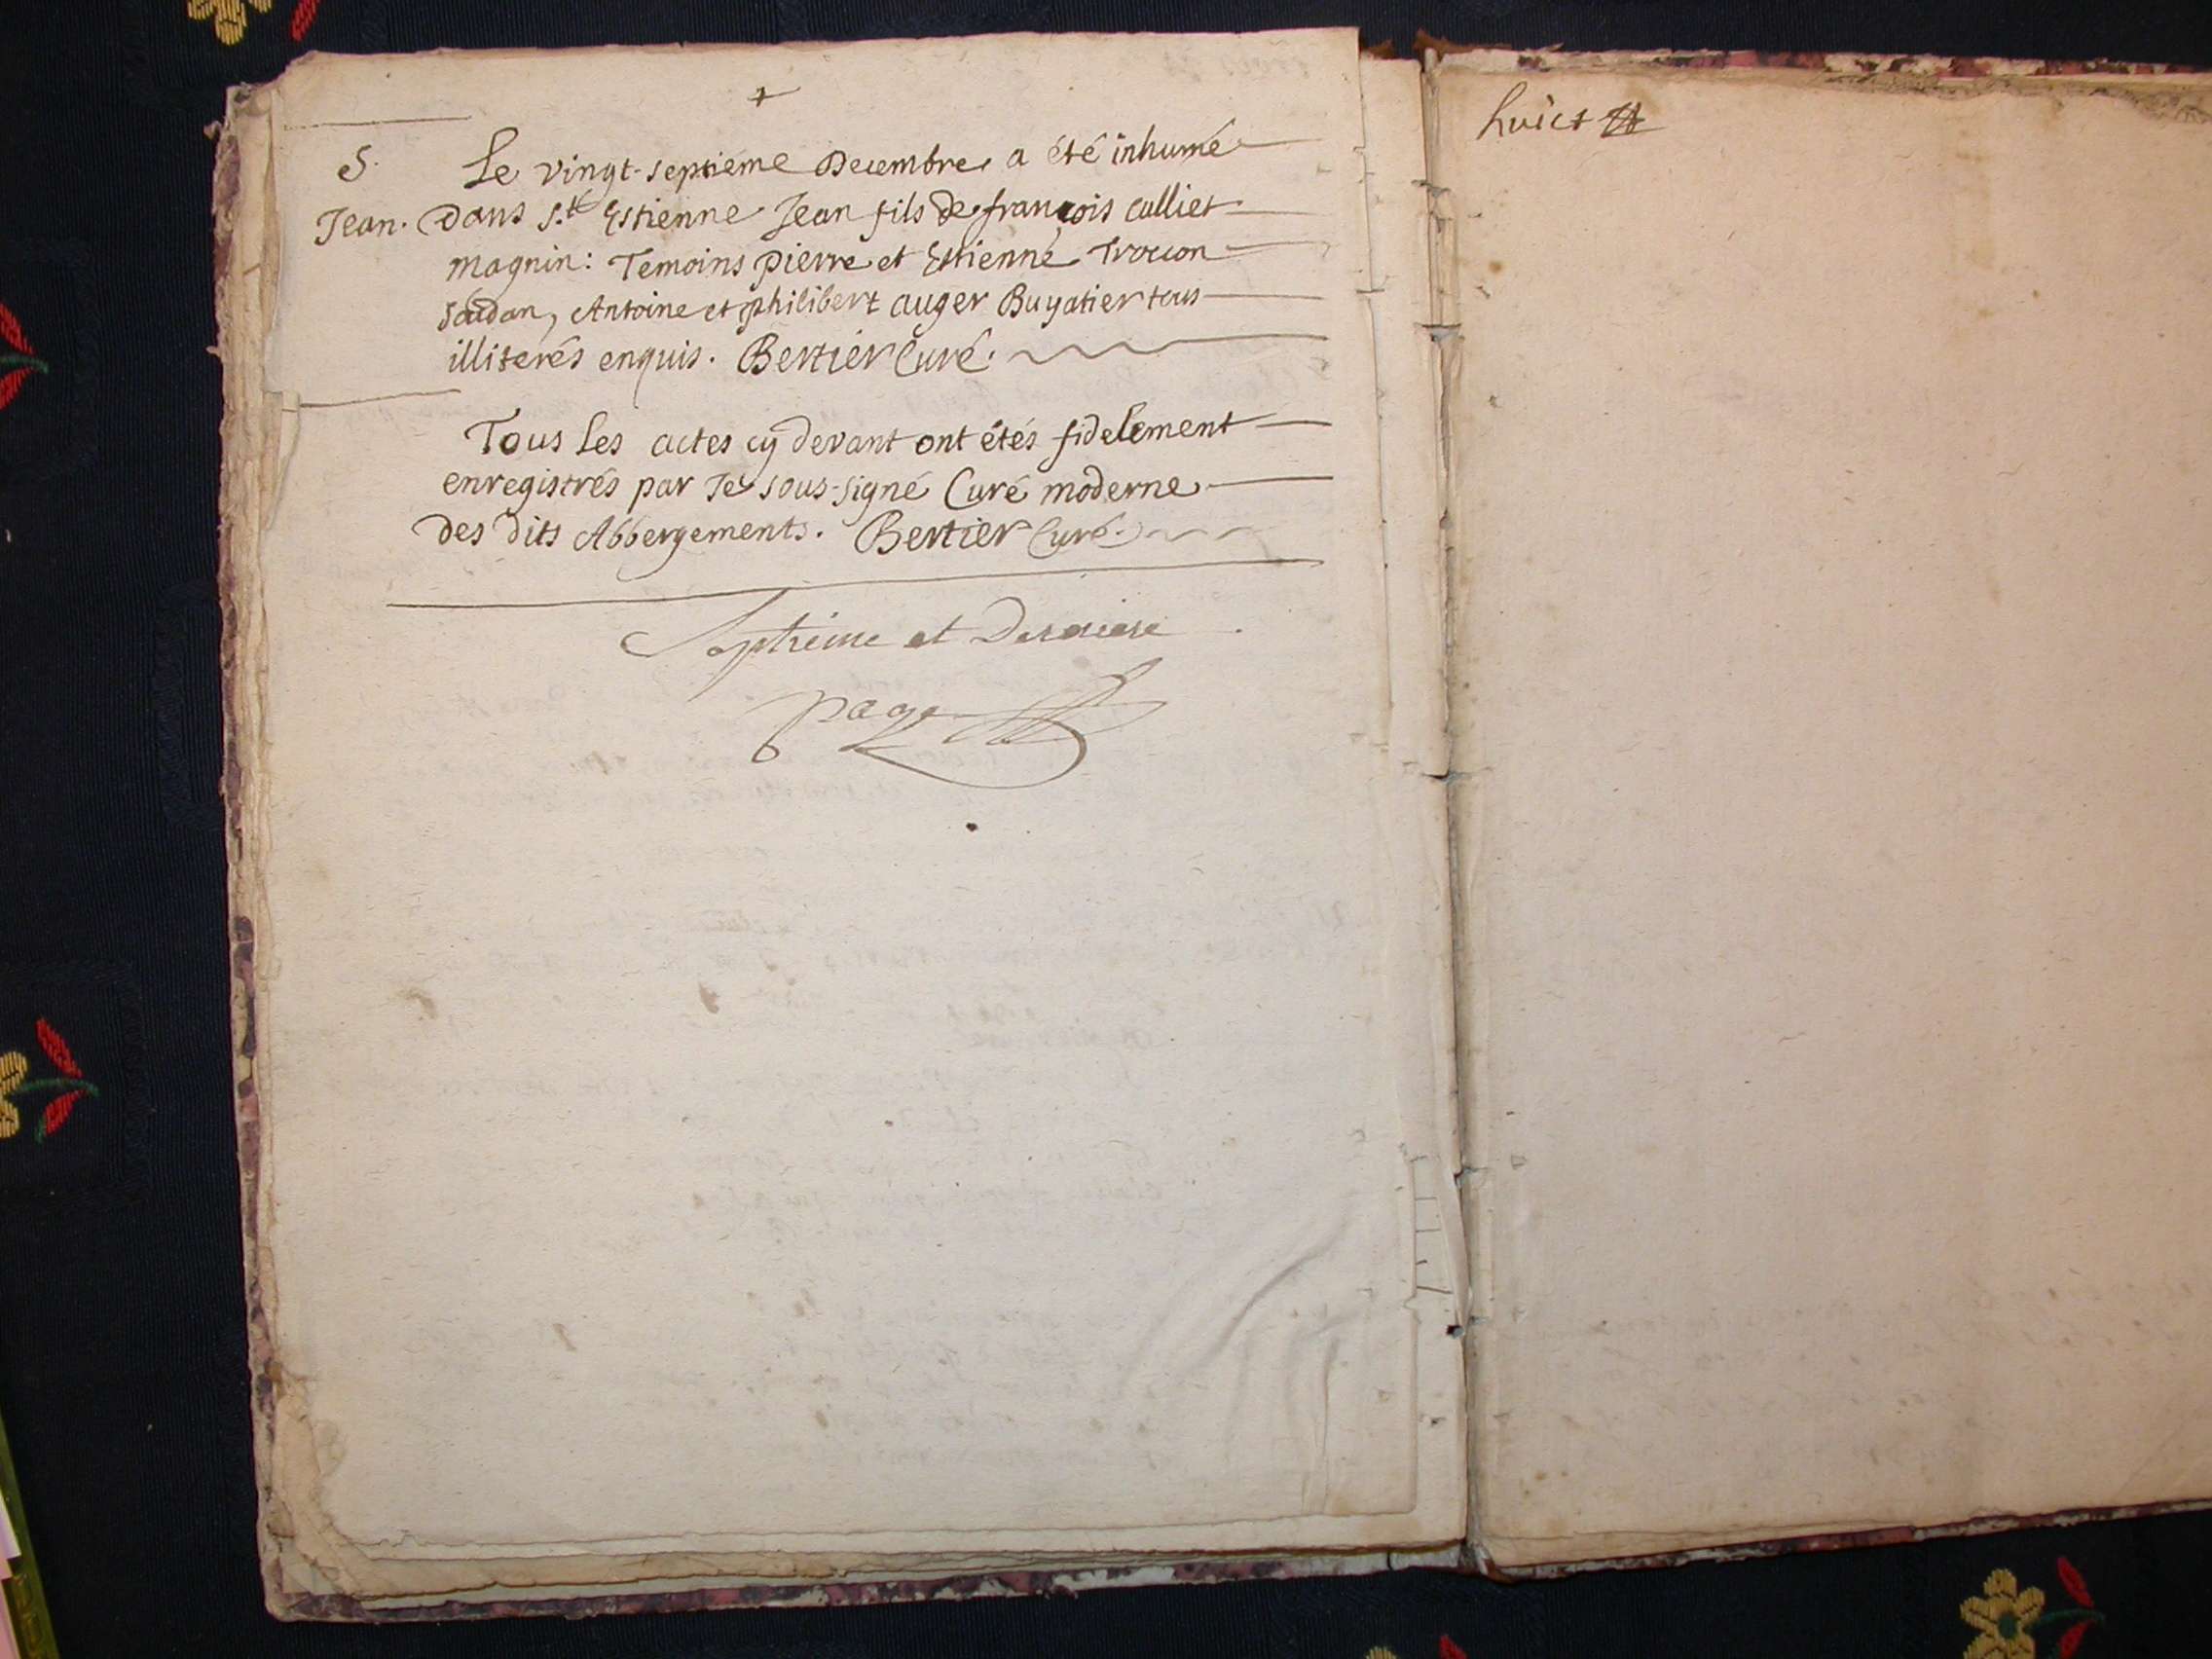 S.
Jean.
Le vingt-septiéme Decembre a été inhumé
Dans S.te Estienne Jean fils de françois culliet
magnin: Temoins pierre et Estienne Trocon
saudan, Antoine et philibert auger Buyatier tous
illiterés enquis. Bertier Curé.
Tous les actes cy devant ont étés fidelement
enregistrés par Je sous-signé Curé moderne
des dits Abbergements. Bertier Curé.
Septieme et Derniere
page
huict